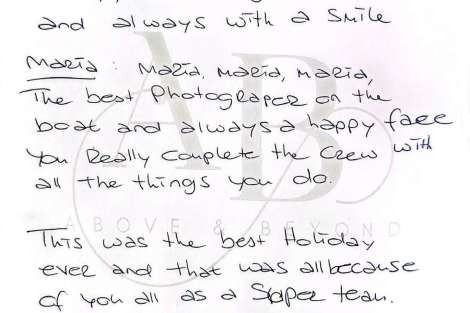 and always with a smile
Maria : Maria, maria, maria,
The best Photograper on the
boat and always a happy face
You Really Complete the Crew with
all the things you do.
ABOVE & BEYOND
This was the best Holiday
ever and that was all because
of you all as a Super team.